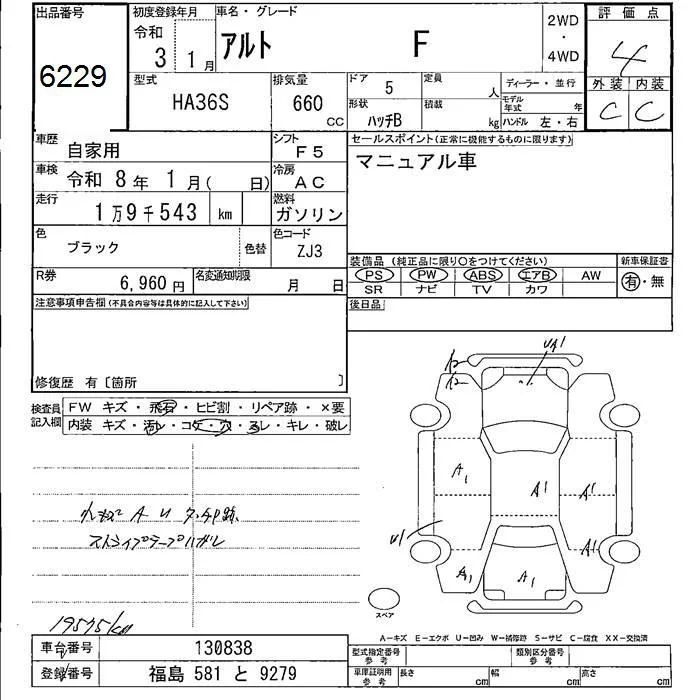 出品番号 初度登録年月 車名・グレード 2WD・4WD 評価点
6229 令和 3 1月 アルト F 4
型式 排気量 ドア 5 定員 人 ディーラー・並行 外装 内装
HA36S 660 CC 形状 ハッチB 積載 kg モデル年式 年 ハンドル 左・右 C C
車歴 自家用 シフト F5 セールスポイント(正常に機能するものに限ります)
車検 令和 8年 1月( 日) 冷房 AC マニュアル車
走行 1万9千543 km 燃料 ガソリン
色 ブラック 色替 色コード ZJ3
装備品 (純正品に限り○をつけてください) 新車保証書
R券 6,960円 名変通知期限 月 日 PS PW ABS エアB AW 有・無
SR ナビ TV カワ
注意事項申告欄(不具合内容等は具体的に記入して下さい) 後日品
修復歴 有〔箇所 〕
検査員記入欄 FW キズ・飛石・ヒビ割・リペア跡・×要
内装 キズ・汚レ・コゲ・穴・スレ・キレ・破レ
UA1
A1
A1 A1
U1 A1
A1 A1
A U
ストライプテープハガレ
スペア
19575km
A-キズ E-エクボ U-凹み W-補修跡 S-サビ C-腐食 XX-交換済
車台番号 130838 型式指定番号 参考 類別区分番号 参考
登録番号 福島 581 と 9279 車庫証明用 参考 長さ cm 幅 cm 高さ cm